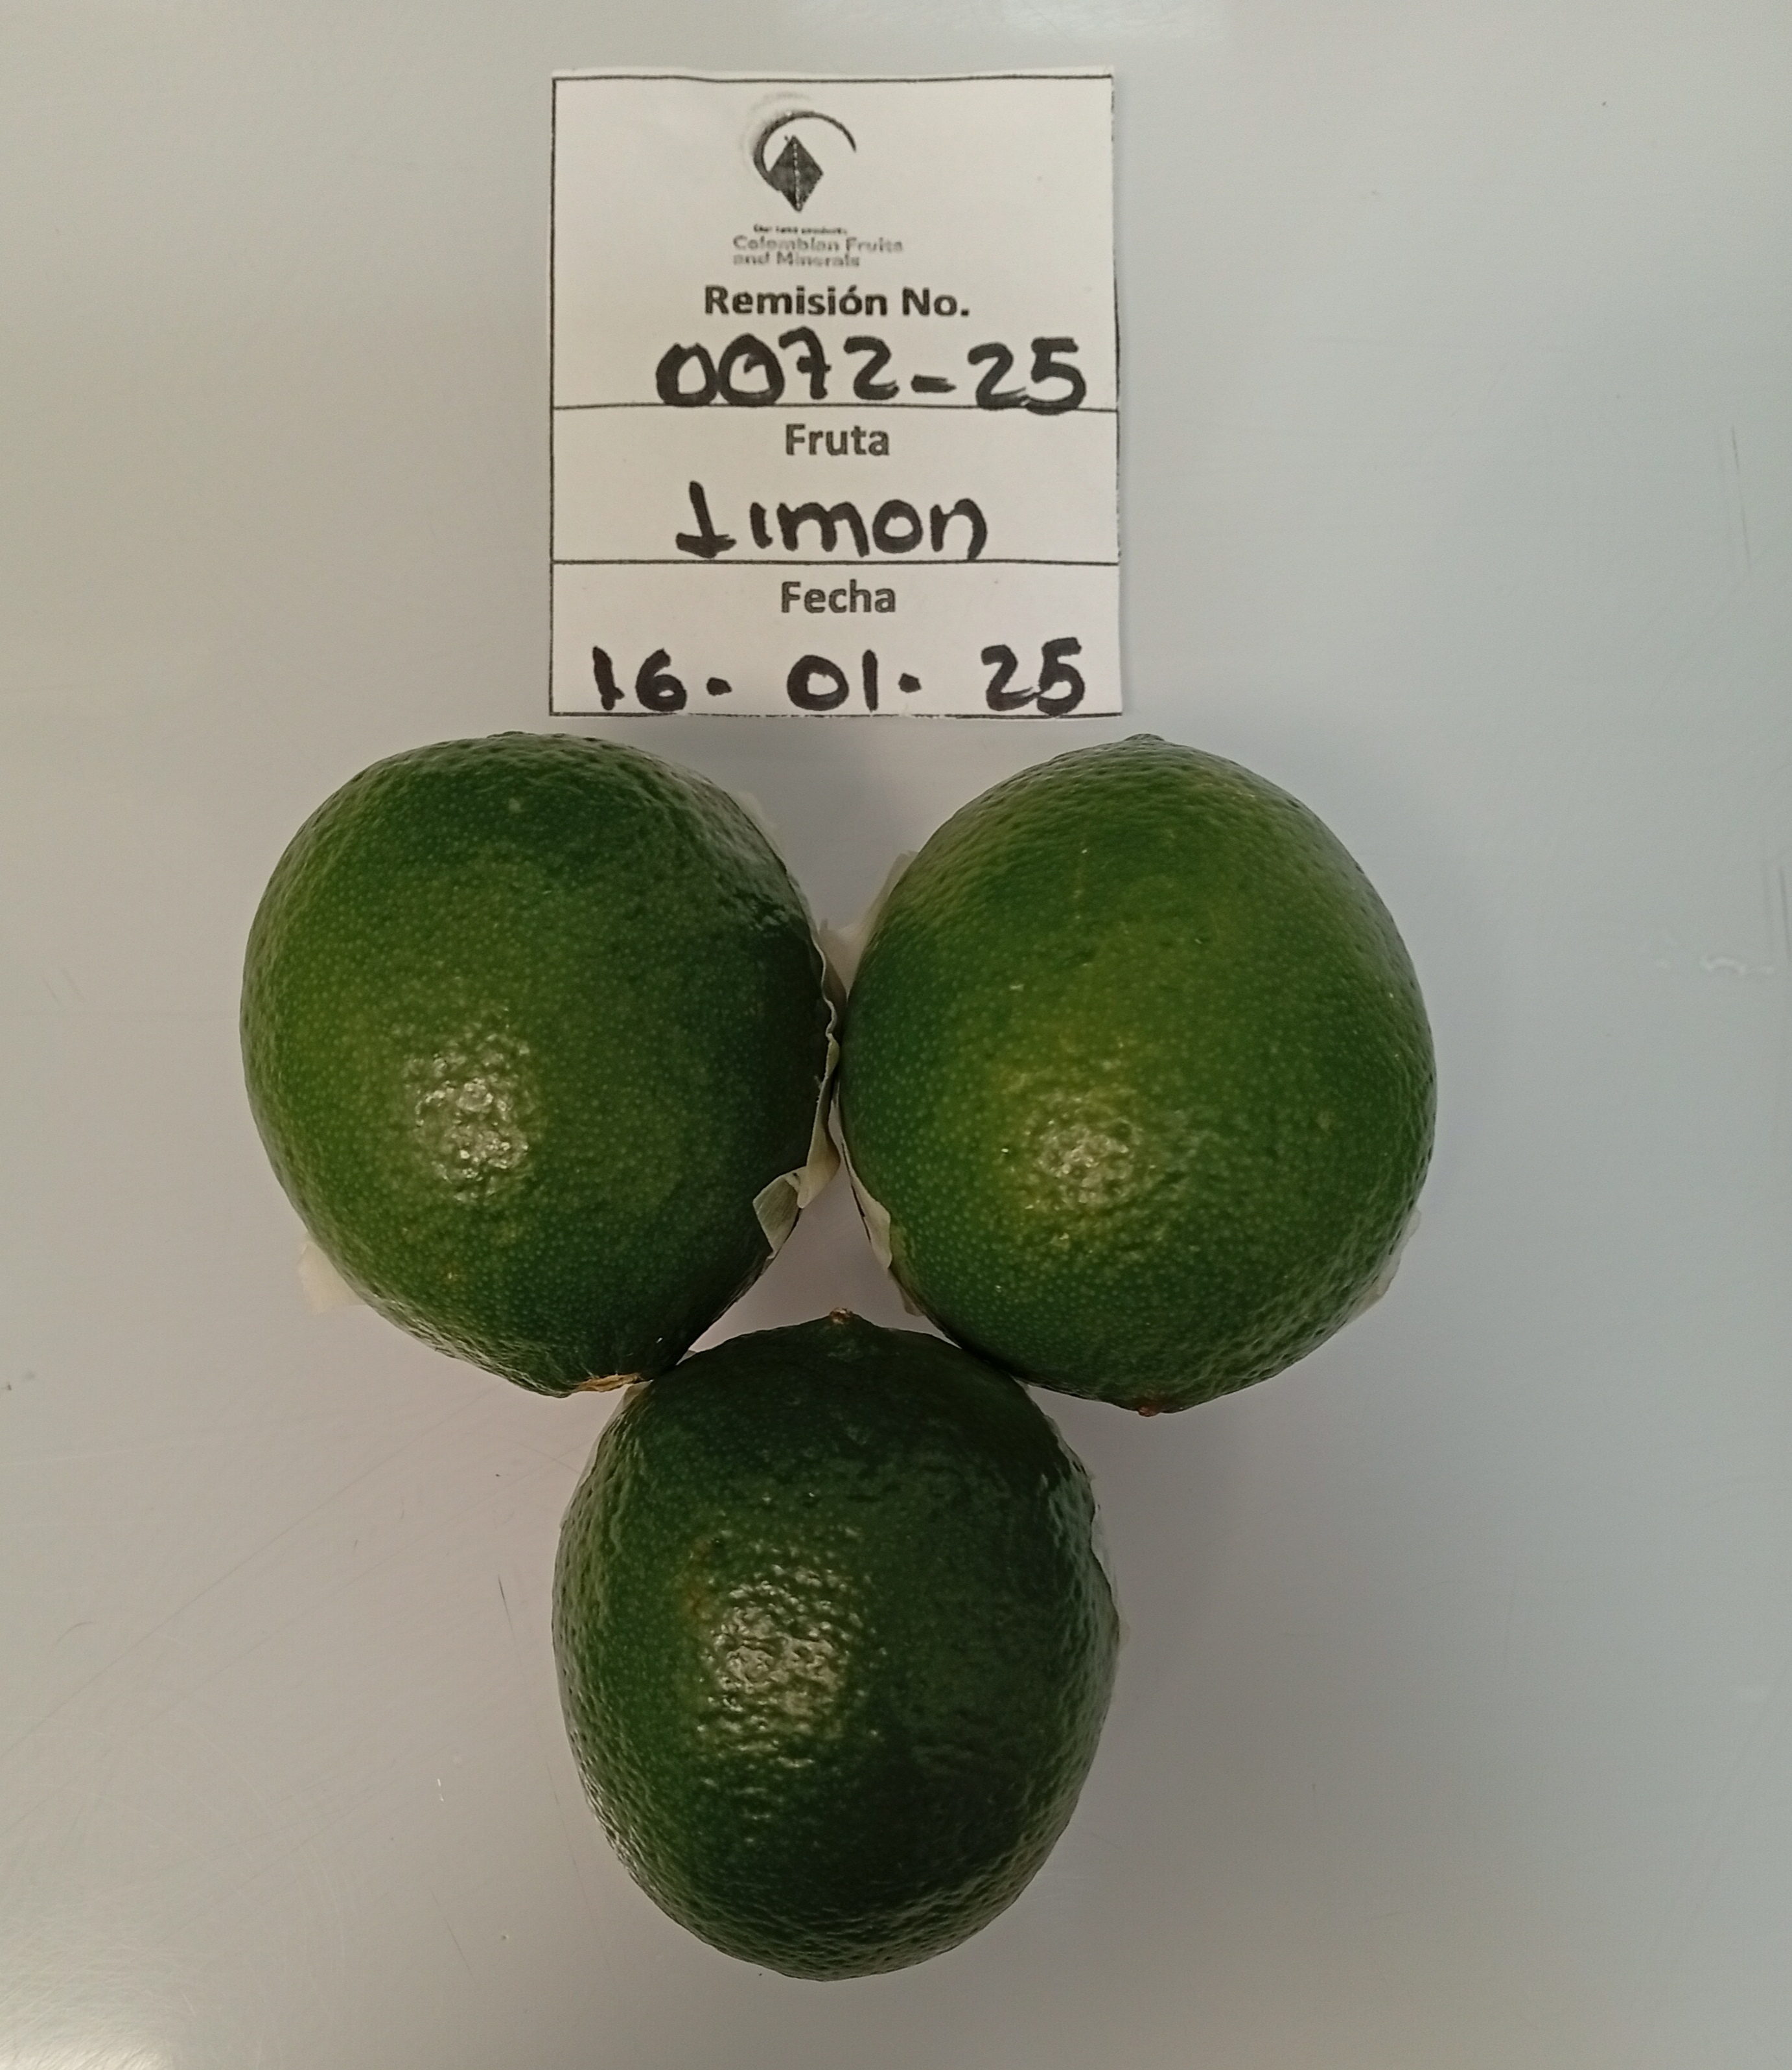 Colombian Fruits
and Minerals
Remisión No.
0072-25
Fruta
Limon
Fecha
16. 01. 25